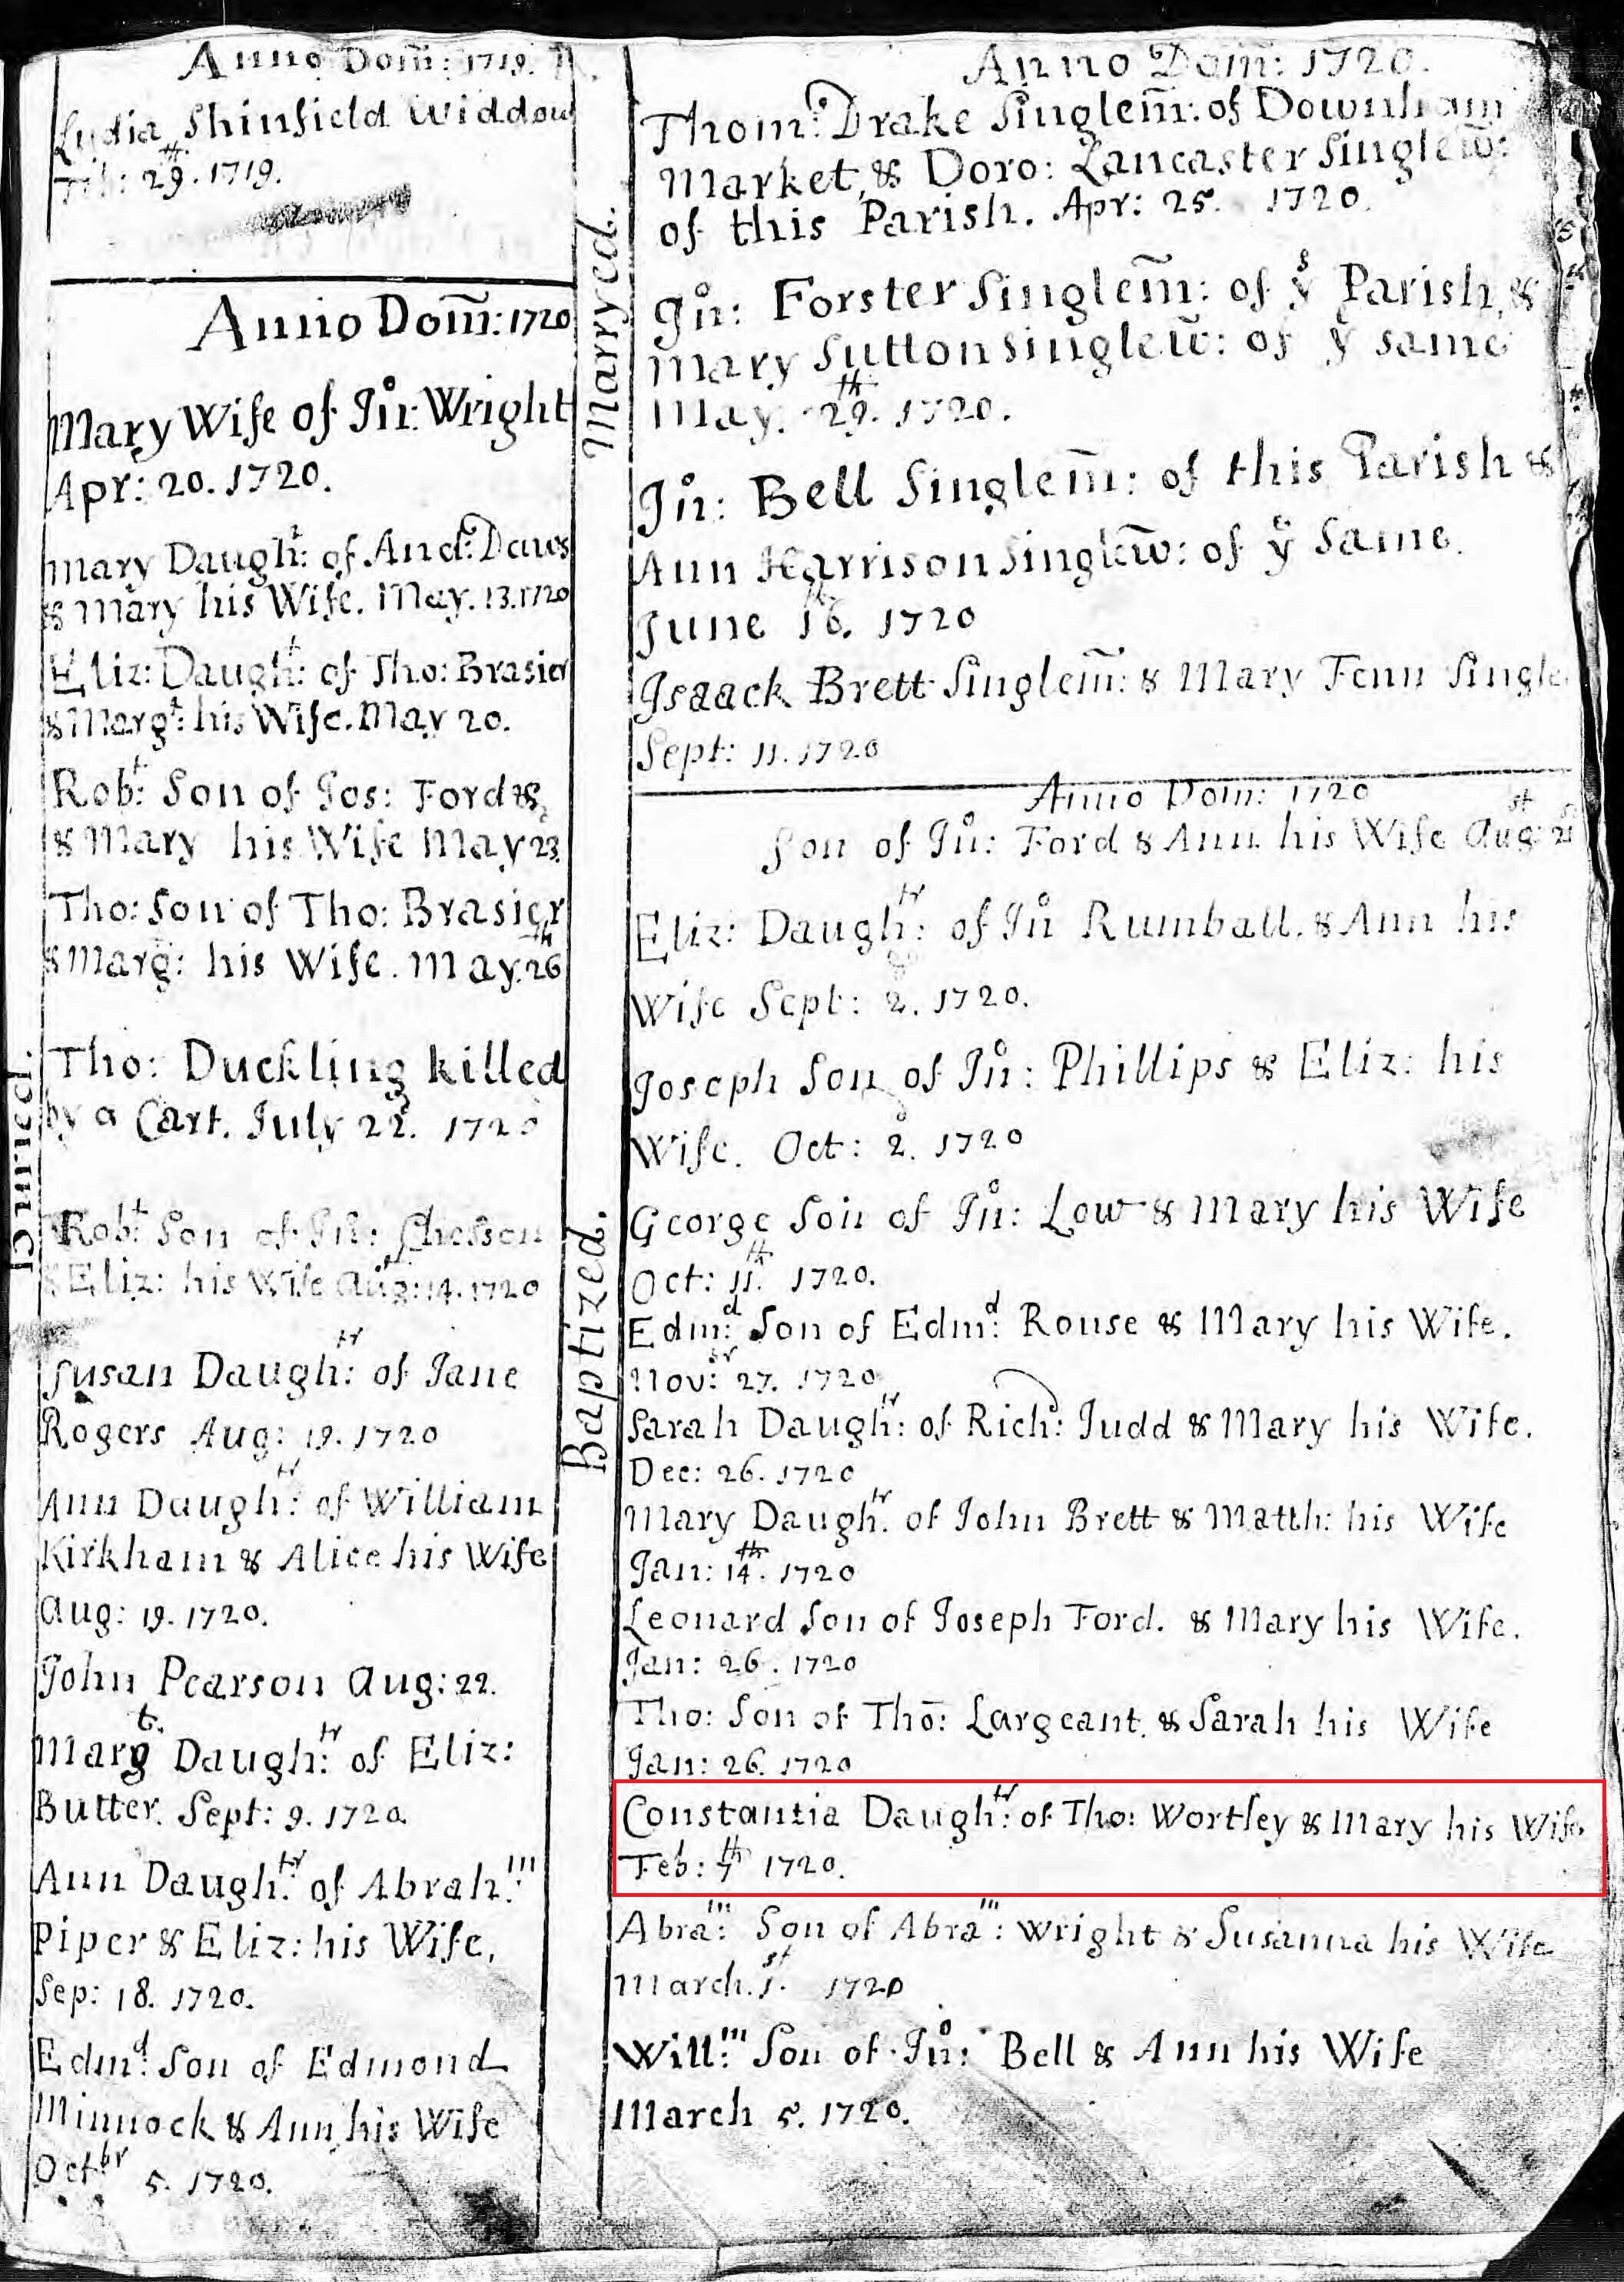 Anno Dom̃: 1719.
Lydia Shinfield Widdow
Feb: 29th. 1719.
Anno Dom̃: 1720
Mary Wife of Jno: Wright
Apr: 20. 1720.
Mary Daughtr: of And: Daws
& Mary his Wife. May. 13. 1720
Eliz: Daught: of Tho: Brasier
& Margt: his Wife. May 20.
Robt: Son of Jos: Ford &
& Mary his Wife May 23
Tho: Son of Tho: Brasier
& Marg: his Wife. May. 26th
Tho: Duckling killed
by a Cart. July 22. 1720
Robt: Son of Jno: Chesson
& Eliz: his Wife Aug: 14. 1720
Susan Daughtr: of Jane
Rogers Aug: 19. 1720
Ann Daughtr: of William
Kirkham & Alice his Wife
Aug: 19. 1720.
John Pearson Aug: 22.
Margt. Daughtr: of Eliz:
Butter. Sept: 9. 1720.
Ann Daughtr: of Abrahm:
Piper & Eliz: his Wife,
Sep: 18. 1720.
Edmd: Son of Edmond
Minnock & Ann his Wife
Octbr 5. 1720.
Buried.
Marryed.
Baptized.
Anno Dom̃: 1720.
Thom: Drake Singlem̃: of Downham
Market, & Doro: Lancaster Singlew̃:
of this Parish. Apr: 25. 1720.
Jno: Forster Singlem̃: of ys Parish, &
Mary Sutton Singlew̃: of ye same
May. 29th. 1720.
Jno: Bell Singlem̃: of this Parish &
Ann Harrison Singlew̃: of ye Same.
June 16th. 1720
Isaack Brett Singlem̃: & Mary Fenn Single
Sept: 11. 1720
Anno Dom: 1720
Son of Jno: Ford & Ann his Wife Aug: 21st
Eliz: Daughtr: of Jno Rumball, & Ann his
Wife Sept: 2. 1720.
Joseph Son of Jno: Phillips & Eliz: his
Wife. Oct: 2. 1720
George Son of Jno: Low & Mary his Wife
Oct: 11th. 1720.
Edmd: Son of Edmd: Rouse & Mary his Wife.
Novbr: 27. 1720
Sarah Daughtr: of Rich: Judd & Mary his Wife.
Dec: 26. 1720
Mary Daughtr. of John Brett & Matth: his Wife
Jan: 14th. 1720
Leonard Son of Joseph Ford. & Mary his Wife.
Jan: 26. 1720
Tho: Son of Tho: Largeant, & Sarah his Wife
Jan: 26. 1720
Constantia Daughtr: of Tho: Wortley & Mary his Wife
Feb: 7th 1720.
Abram: Son of Abram: Wright & Susanna his Wife
March. 1st. 1720
Willm: Son of Jno: Bell & Ann his Wife
March 5. 1720.